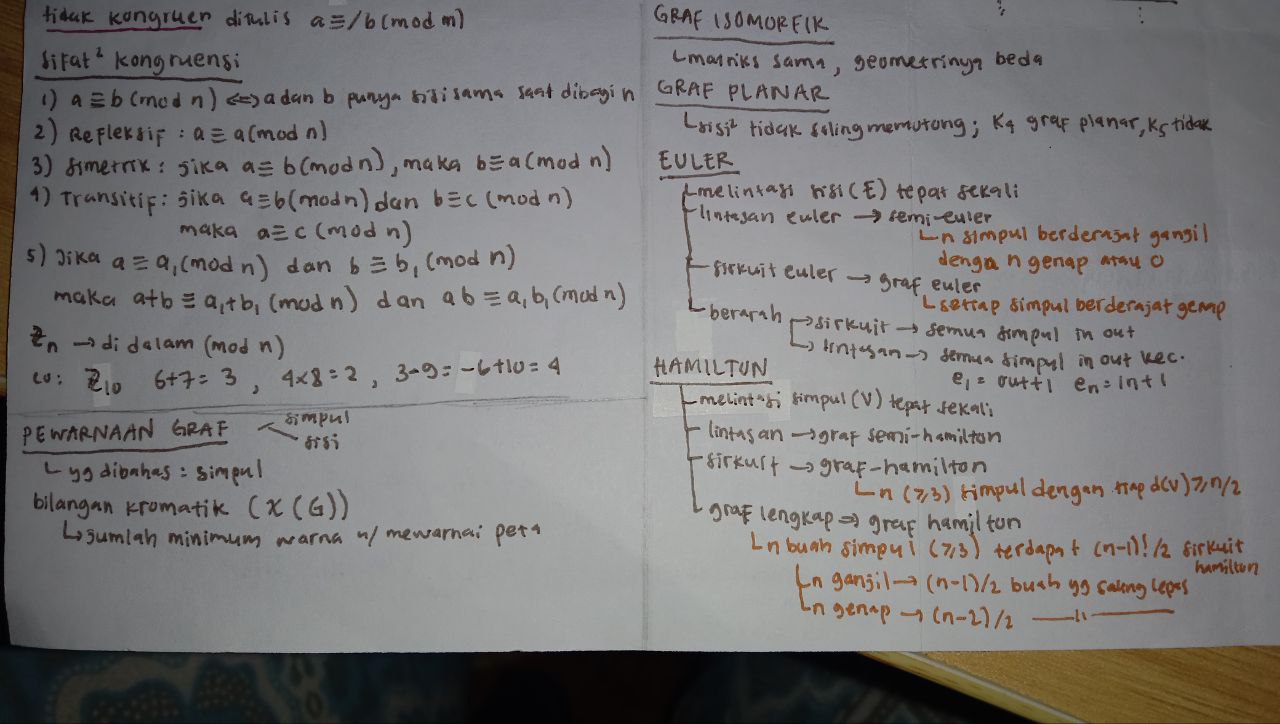 tidak kongruen ditulis a≡/b(mod m)
Sifat² kongruensi
1) a≡b(mod n) <=> a dan b punya sisi sama saat dibagi n
2) Refleksif : a≡a(mod n)
3) Simetrik : Jika a≡b(mod n), maka b≡a(mod n)
4) Transitif: Jika a≡b(mod n) dan b≡c (mod n)
maka a≡c (mod n)
5) Jika a≡a₁(mod n) dan b≡b₁(mod n)
maka a+b≡a₁+b₁(mod n) dan ab≡a₁b₁(mod n)
Zn → di dalam (mod n)
co: Z₁₀ 6+7=3, 4×8=2, 3-9=-6+10=4
PEWARNAAN GRAF
simpul
sisi
yg dibahas : simpul
bilangan kromatik (χ(G))
Jumlah minimum warna u/ mewarnai peta
GRAF ISOMORFIK
matriks sama, geometrinya beda
GRAF PLANAR
sisi² tidak saling memotong; K₄ graf planar, K₅ tidak
EULER
melintasi sisi(E) tepat sekali
lintasan euler → semi-euler
n simpul berderajat ganjil
denga n genap atau 0
sirkuit euler → graf euler
setiap simpul berderajat genap
berarah → sirkuit → semua simpul in out
→ lintasan → semua simpul in out kec.
e₁ = out+1 en = in+1
HAMILTON
melintasi simpul (V) tepat sekali
lintasan → graf semi-hamilton
sirkuit → graf-hamilton
n (≥3) simpul dengan tiap d(v)≥n/2
graf lengkap => graf hamilton
n buah simpul (≥3) terdapat (n-1)!/2 sirkuit
hamilton
n ganjil → (n-1)/2 buah yg saling lepas
n genap → (n-2)/2 —— 11 ——